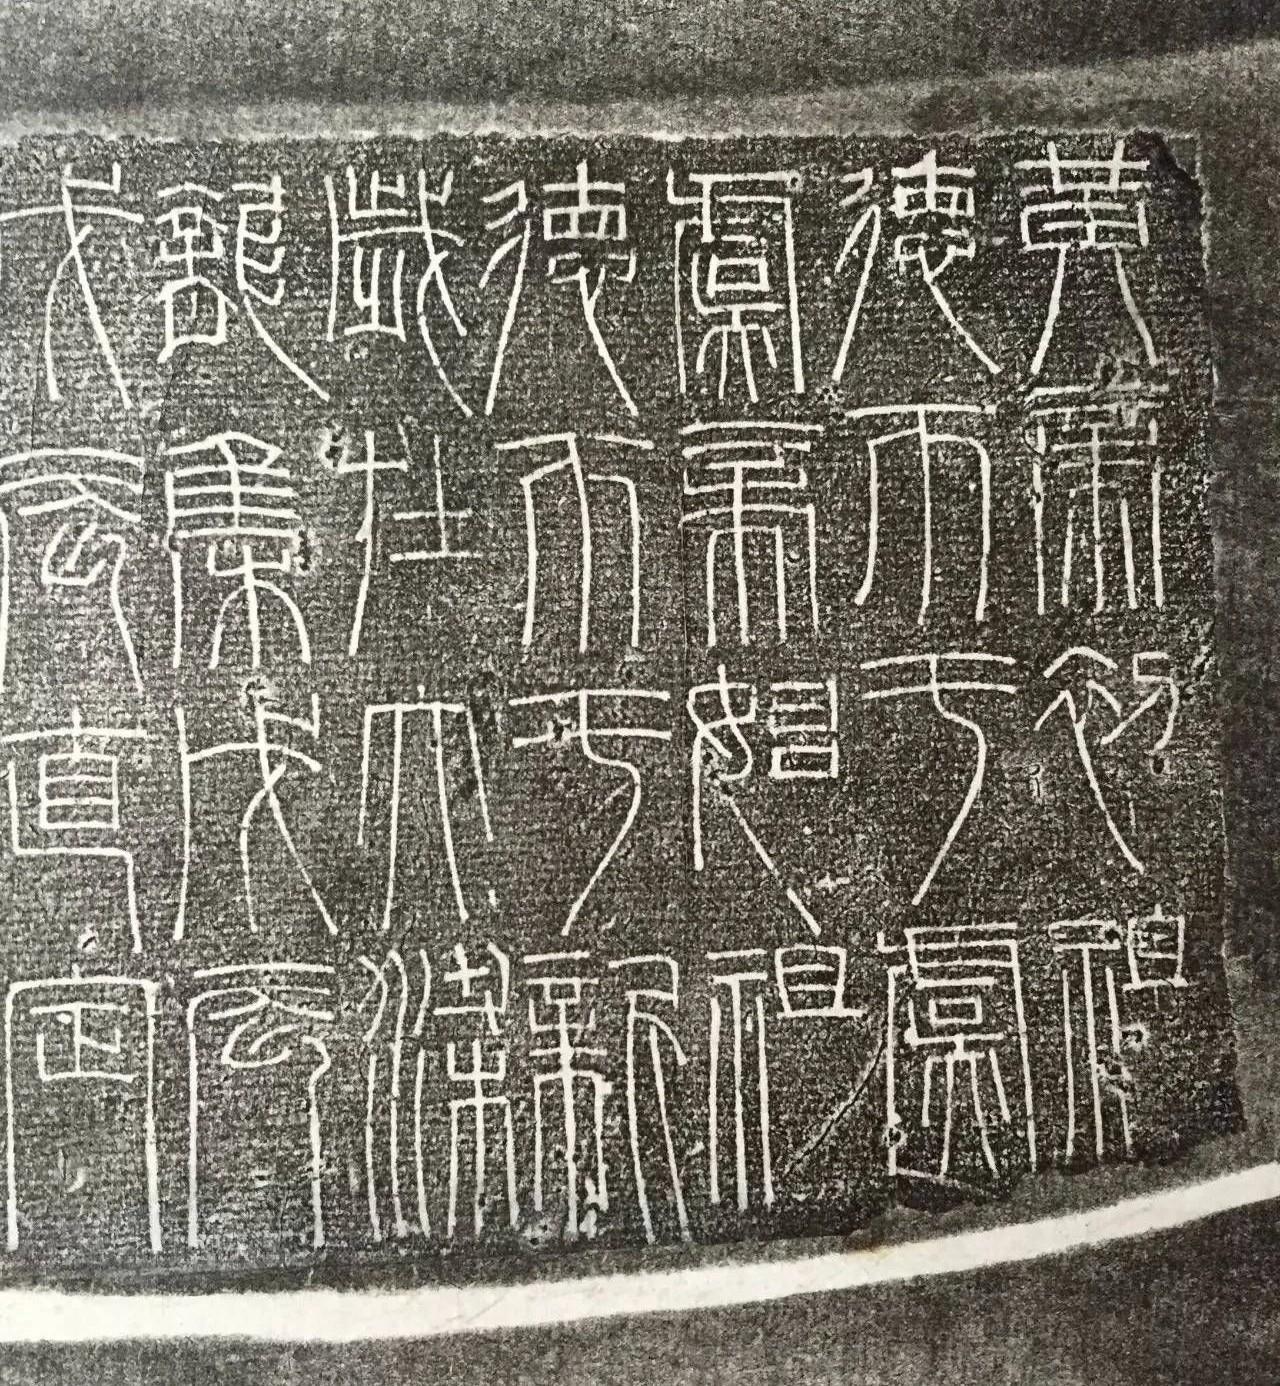 黃帝初祖
德帀于虞
虞帝始祖
德帀于新
歲在大梁
龍集戊辰
戊辰直定